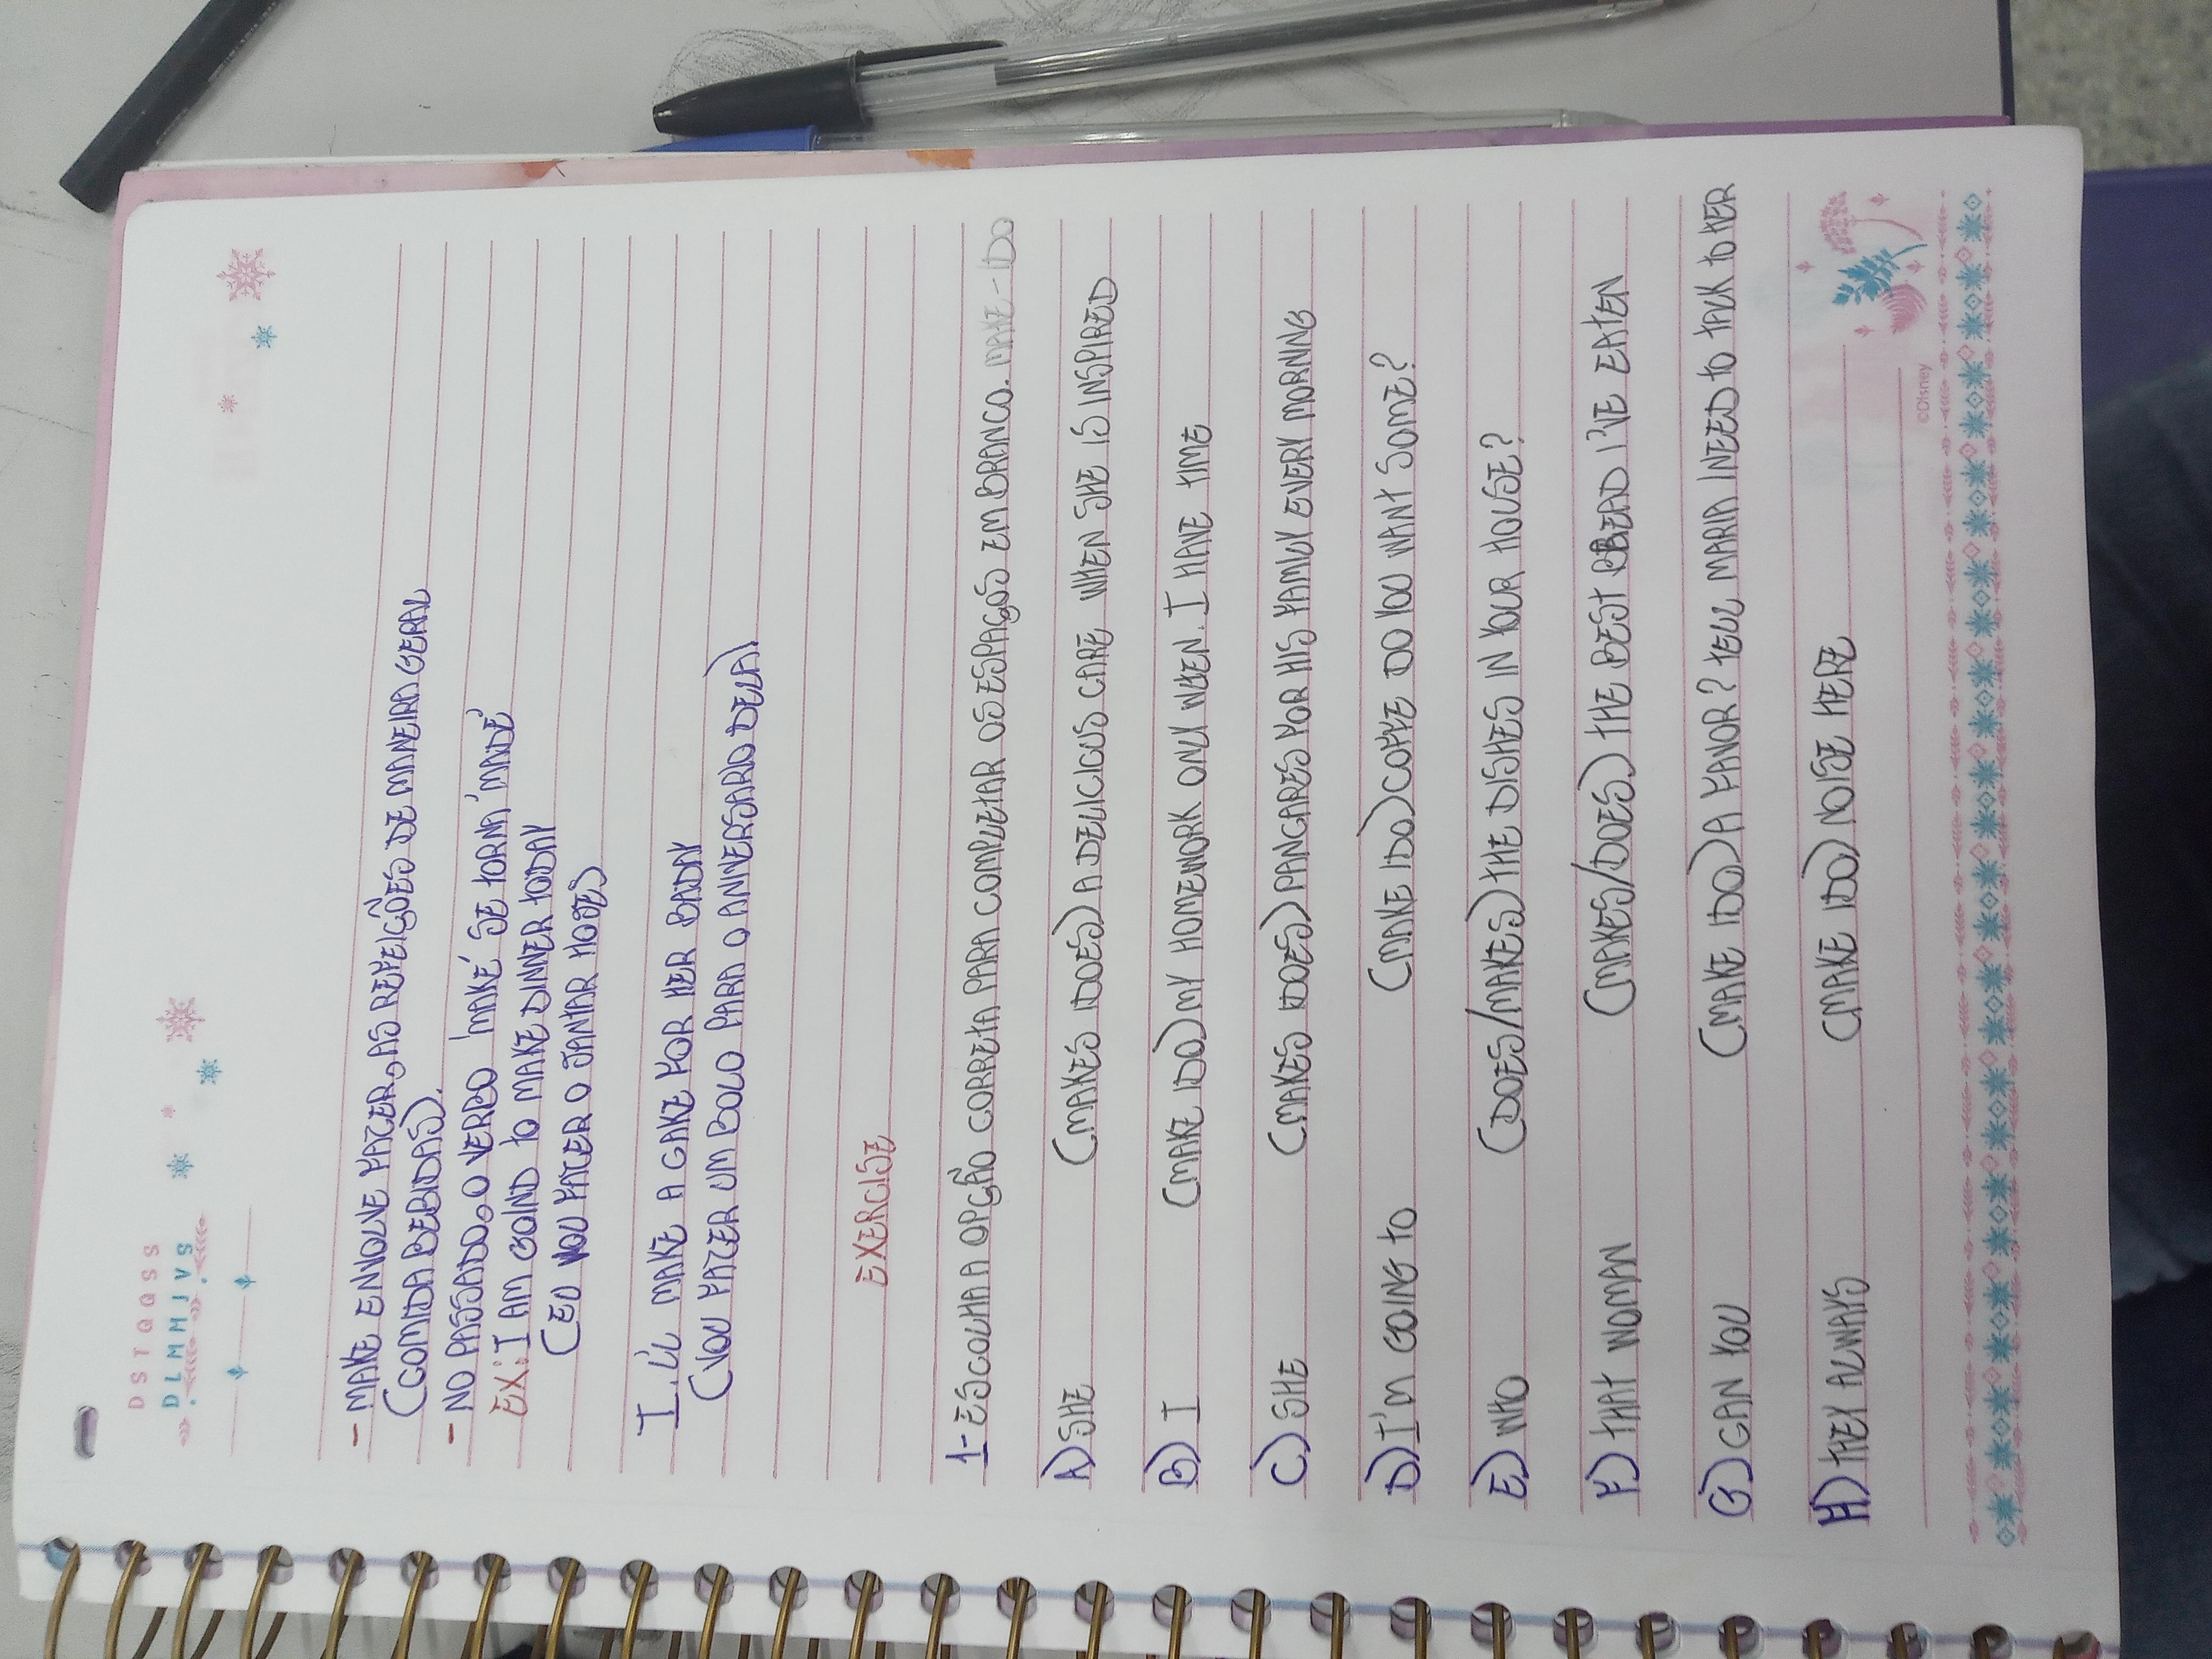 D S T Q Q S S
D L M M J V S
- MAKE ENVOLVE FAZER, AS REFEIÇÕES DE MANEIRA GERAL
(COMIDA BEBIDAS).
- NO PASSADO, O VERBO 'MAKE' SE TORNA 'MADE'
EX: I AM GOIND TO MAKE DINNER TODAY
(EU VOU FAZER O JANTAR HOJE)
I'LL MAKE A CAKE FOR HER BADAY
(VOU FAZER UM BOLO PARA O ANIVERSARIO DELA)
EXERCISE
1- ESCOLHA A OPÇÃO CORRETA PARA COMPLETAR OS ESPAÇOS EM BRANCO. MAKE - DO
A) SHE (MAKES /DOES) A DELICIOUS CAKE WHEN SHE IS INSPIRED
B) I (MAKE /DO) MY HOMEWORK ONLY WHEN I HAVE TIME
C) SHE (MAKES /DOES) PANCAKES FOR HIS FAMILY EVERY MORNING
D) I'M GOING TO (MAKE /DO) COFFE DO YOU WANT SOME?
E) WHO (DOES/MAKES) THE DISHES IN YOUR HOUSE?
F) THAT WOMAN (MAKES/DOES) THE BEST BREAD I'VE EATEN
G) CAN YOU (MAKE /DO) A FAVOR? TELL MARIA I NEED TO TALK TO HER
H) THEY ALWAYS (MAKE /DO) NOISE HERE
©Disney